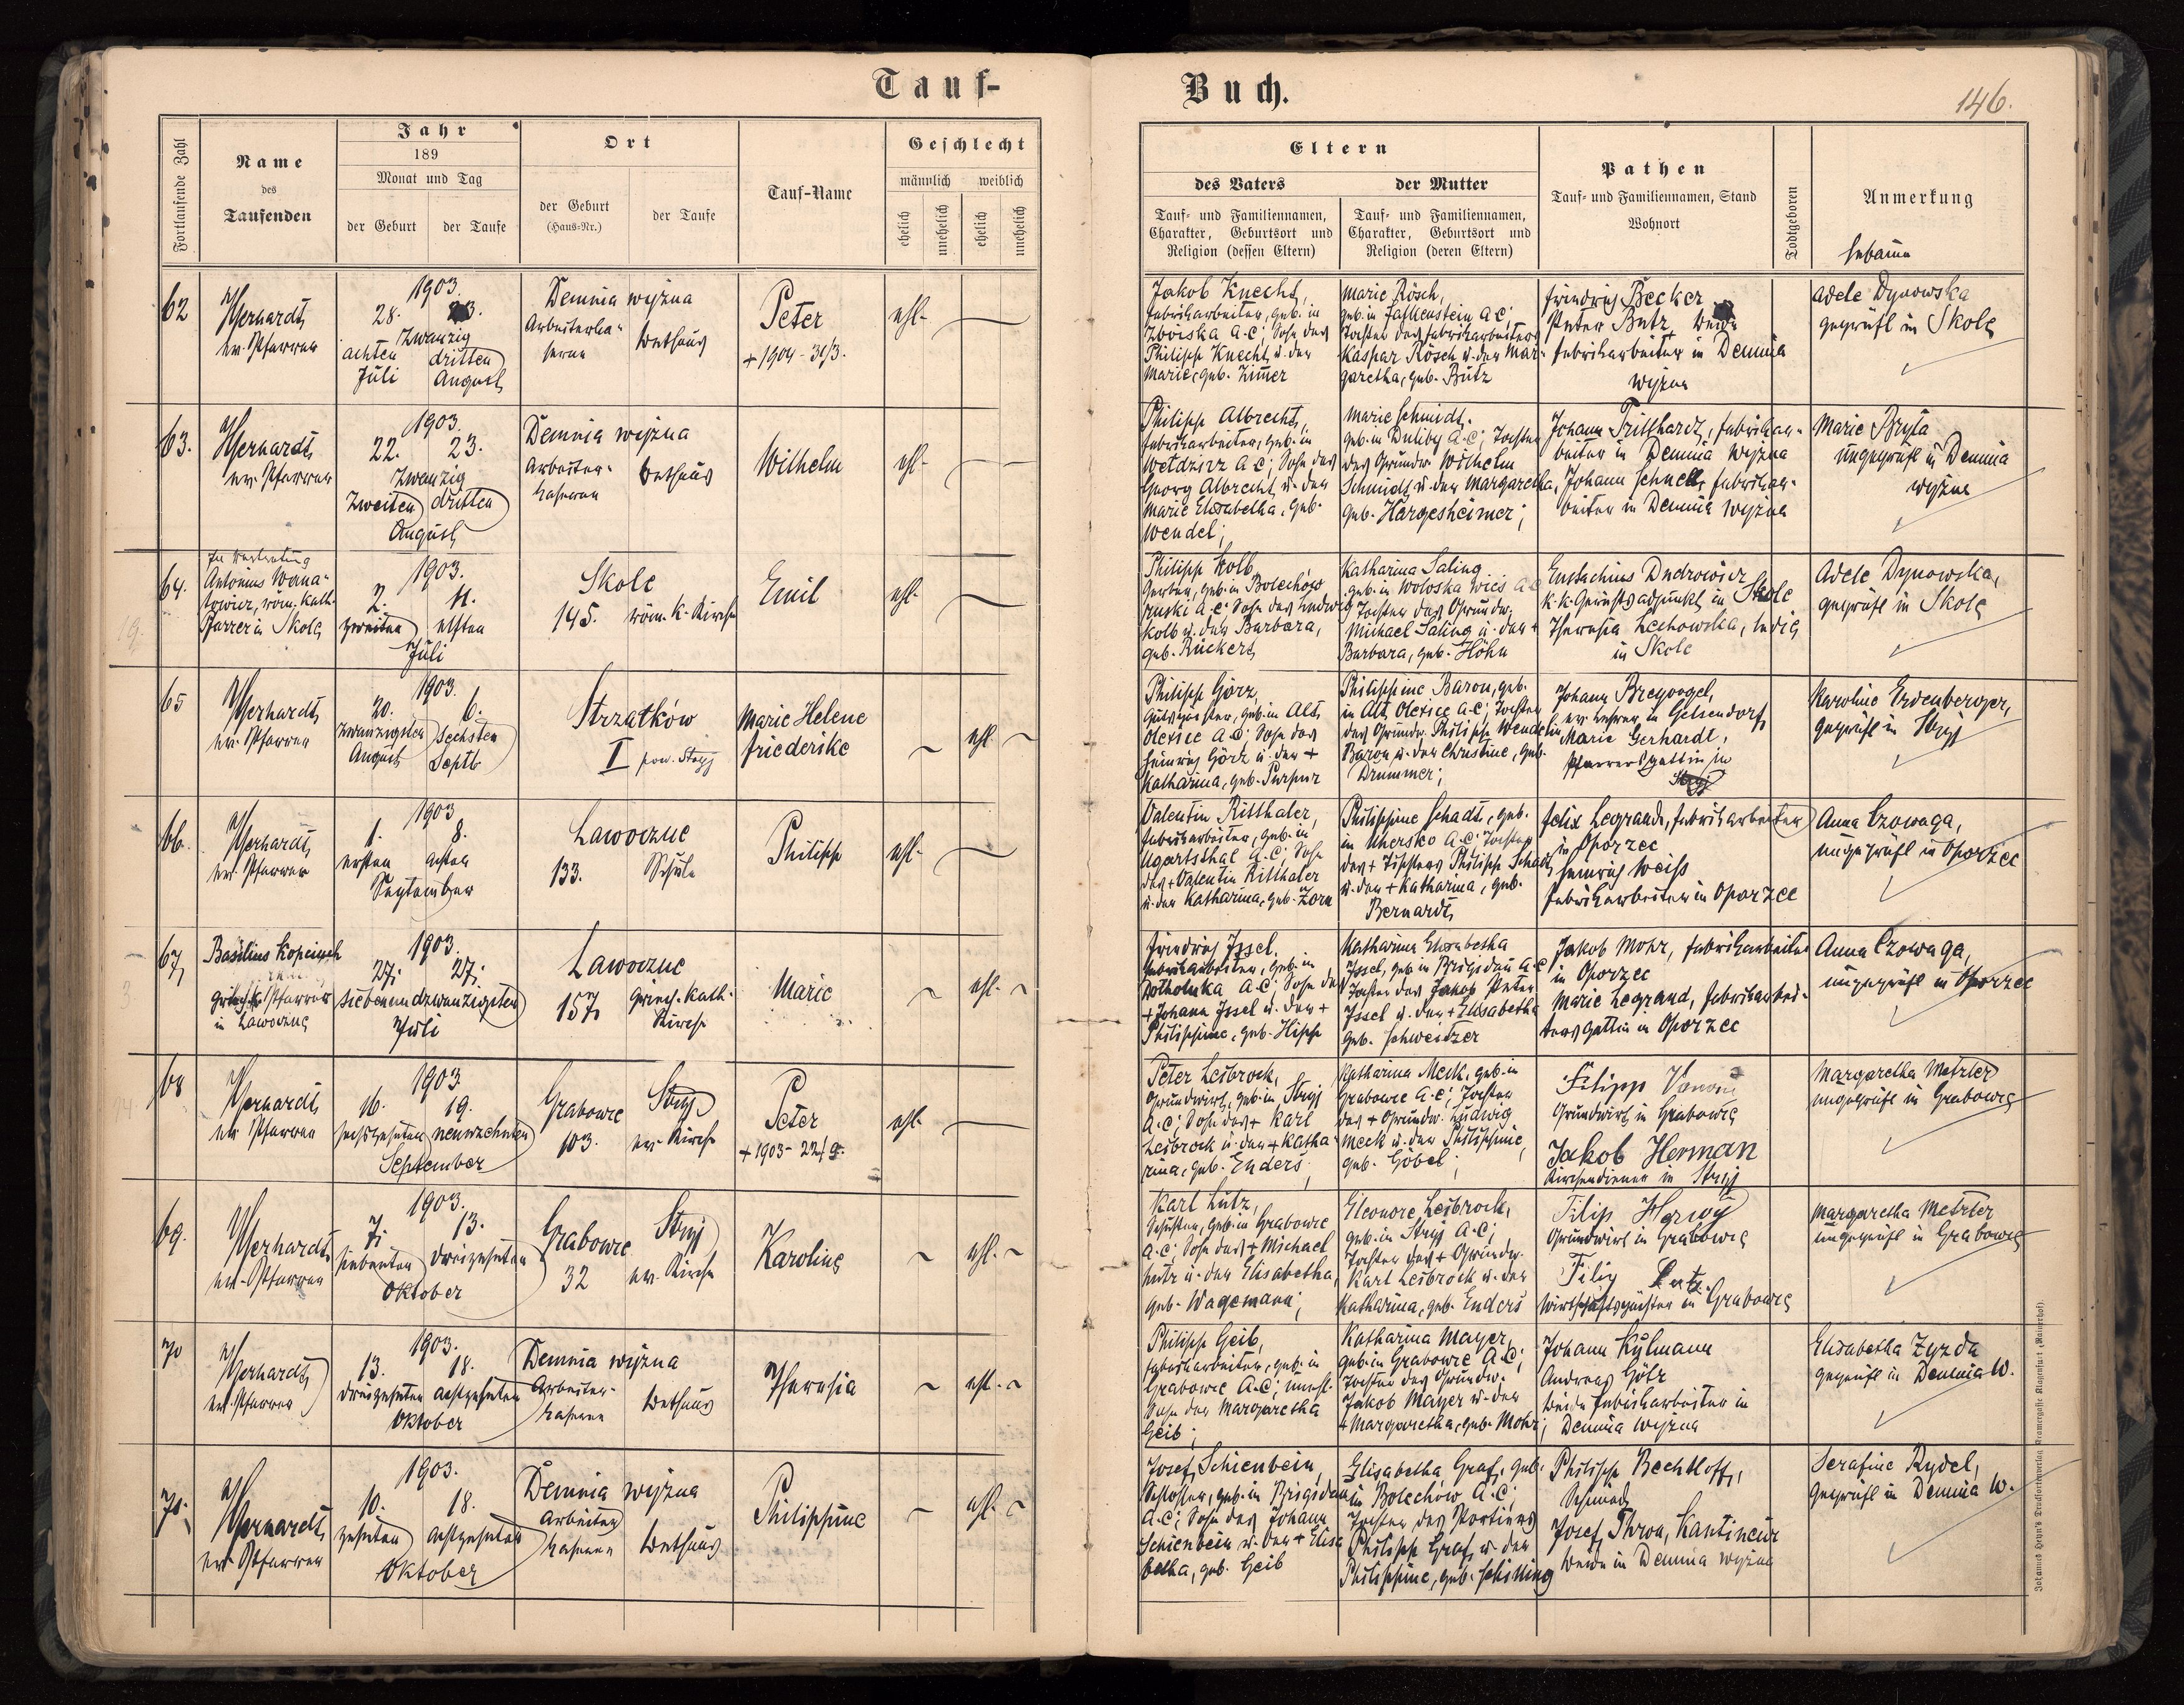 Tauf-
Buch.
146.
Fortlaufende Zahl
Name
des
Taufenden
Jahr
189
Monat und Tag
der Geburt
der Taufe
Ort
der Geburt
(Haus-Nr.)
der Taufe
Tauf-Name
Geschlecht
männlich
weiblich
ehelich
unehelich
ehelich
unehelich
Eltern
des Vaters
Tauf- und Familiennamen,
Charakter, Geburtsort und
Religion (dessen Eltern)
der Mutter
Tauf- und Familiennamen,
Charakter, Geburtsort und
Religion (deren Eltern)
Pathen
Tauf- und Familiennamen, Stand
Wohnort
Todtgeboren
Anmerkung
Hebamme
62
Gerhardt
ev. Pfarrer
1903.
28.
Zwanzig
achten
dritten
Juli
August
Demnia wyżna
Arbeiterka-
serne
Bethaus
Peter
+ 1904 - 31/3.
ehl.
Jakob Knecht,
Fabriksarbeiter, geb. in
A.C; Sohn des
Philipp Knecht u. der
Marie, geb. Zimmer
Marie Rösch,
geb. in Falkenstein A.C;
Tochter des Fabriksarbeiters
Kaspar Rösch u. der Mar-
garetha, geb. Butz
Friedrich Becker
Peter Butz, beide
Fabriksarbeiter in Demnia
wyżna
Adele Dynowska
geprüft in Skole
63.
Gerhardt
ev. Pfarrer
1903.
22.
23.
Zwanzig
Zweiten
dritten
August
Demnia wyżna
Arbeiter-
kaserne
Bethaus
Wilhelm
ehl.
Philipp Albrecht,
Fabriksarbeiter, geb. in
Wełdzirz A.C; Sohn des
Georg Albrecht u. der
Marie Elisabetha, geb.
Wendel;
Marie Schmidt,
geb. in Duliby A.C; Tochter
des Grundw. Wilhelm
Schmidt u. der Margaretha,
geb. Hargesheimer;
Johann Tritthardt, Fabriksar-
beiter in Demnia wyżna
Johann Schnell, Fabriksar-
beiter in Demnia wyżna
Marie Bryła
ungeprüft in Demnia
wyżna
64.
In Vertretung
Antonius Wana-
towicz, röm. kath.
Pfarrer in Skole
1903.
2.
11.
zweiten
elften
Juli
Skole
145.
röm. k. Kirche
Emil
ehl.
Philipp Kolb
Gerber, geb. in Bolechów
ruski A.C; Sohn des Ludwig
Kolb u. der Barbara,
geb. Rückert
Katharina Saling
geb. in Wołoska wieś A.C
Tochter des Grundw.
Michael Saling u. der +
Barbara, geb. Höhn
Eustachius Dudrowicz
k.k. Gerichtsadjunkt in Skole
Theresia Lechowska, ledig
in Skole
Adele Dynowska,
geprüft in Skole
65
Gerhardt
ev. Pfarrer
1903.
20.
6.
zwanzigsten
sechsten
August
Septb
Strzałków
I pow. Stryj
Marie Helene
Friederike
ehl.
Philipp Görz,
Gutspächter, geb. in Alt
Olexice A.C; Sohn des
Heinrich Görz u. der +
Katharina, geb. Purpur
Philippine Baron, geb.
in Alt Olexice A.C; Tochter
des Grundw. Philipp Wendelin
Baron u. der Christine, geb.
Drummer;
Johann Breyvogel,
ev. Lehrer in Gelsendorf
Marie Gerhardt,
Pfarrersgattin in
Stryj
Karoline Erdenberger,
geprüft in Stryj
66.
Gerhardt
ev. Pfarrer
1903
1.
8.
ersten
achten
September
Lawoczne
133.
Schule
Philipp
ehl.
Valentin Ritthaler,
Fabriksarbeiter, geb. in
Ugartsthal A.C; Sohn
des + Valentin Ritthaler
u. der Katharina, geb. Zorn
Philippine Schadt, geb.
in Uhersko A.C; Tochter
des + Tischlers Philipp Schadt
u. der + Katharina, geb.
Bernardt
Felix Legrand, Fabriksarbeiter
in Oporzec
Heinrich Weiss
Fabriksarbeiter in Oporzec
Anna Czowaga,
ungeprüft in Oporzec
67
Basilius
Pfarrer
in Lawoczne
1903.
27.
27.
siebenundzwanzigsten
Juli
Lawoczne
157
Griech. Kath.
Kirche
Marie
ehl.
Friedrich Issel,
Fabriksarbeiter, geb. in
A.C; Sohn des
+ Johann Issel u. der +
Philippine, geb. Hipp
Katharina Elisabetha
Issel, geb. in Brigidau A.C
Tochter des Jakob Peter
Issel u. der + Elisabetha
geb. Schweitzer
Jakob Mohr, Fabriksarbeiter
in Oporzec
Marie Legrand, Fabriksarbei-
tersgattin in Oporzec
Anna Czowaga,
ungeprüft in Oporzec
68
Gerhardt
ev. Pfarrer
1903.
16.
19.
sechzehnten
neunzehnten
September
Grabowce
103.
Stryj
ev. Kirche
Peter
+ 1903 - 22/9.
ehl.
Peter Lesbrock,
Grundwirt, geb. in Stryj
A.C; Sohn des + Karl
Lesbrock u. der + Katha-
rina, geb. Enders;
Katharina Meck, geb. in
Grabowce A.C; Tochter
des + Grundw. Ludwig
Meck u. der Philippine,
geb. Göbel;
Filipp
Grundwirt in Grabowce
Jakob Herman
Kirchendiener in Stryj
Margaretha Metzler
ungeprüft in Grabowce
69.
Gerhardt
ev. Pfarrer
1903.
7.
13.
siebenten
dreizehnten
Oktober
Grabowce
32
Stryj
ev. Kirche
Karoline
ehl.
Karl Lutz,
Schuster, geb. in Grabowce
A.C; Sohn des + Michael
Lutz u. der Elisabetha,
geb. Wagemann;
Eleonore Lesbrock,
geb. in Stryj A.C;
Tochter des + Grundw.
Karl Lesbrock u. der
Katharina, geb. Enders
Filip Herwy
Grundwirt in Grabowce
Filip Lutz
Wirtschaftspächter in Grabowce
Margaretha Metzler
ungeprüft in Grabowce
70
Gerhardt
ev. Pfarrer
1903.
13.
18.
dreizehnten
achtzehnten
Oktober
Demnia wyżna
Arbeiter-
kaserne
Bethaus
Theresia
ehl.
Philipp Geib,
Fabriksarbeiter, geb. in
Grabowce A.C; unehl.
Sohn der Margaretha
Geib;
Katharina Mayer,
geb. in Grabowce A.C;
Tochter des Grundw.
Jakob Mayer u. der
+ Margaretha, geb. Mohr;
Johann Kulmann
Andreas Götz
beide Fabriksarbeiter in
Demnia wyżna
Elisabetha Zyzda
geprüft in Demnia W.
71.
Gerhardt
ev. Pfarrer
1903.
10.
18.
zehnten
achtzehnten
Oktober
Demnia wyżna
Arbeiter
kaserne
Bethaus
Philippine
ehl.
Josef Schienbein,
Schlosser, geb. in Brigidau
A.C; Sohn des Johann
Schienbein u. der + Elisa
betha, geb. Geib
Elisabetha Graf, geb.
in Bolechów A.C;
Tochter des Portiers
Philipp Graf u. der
Philippine, geb. Schilling
Philipp Bechtloff,
Schmied
Josef Thron, Kantineur
beide in Demnia wyżna
Serafine Rydel,
geprüft in Demnia W.
Johannes Heyn's Drucksortenverlag Kramergasse Klagenfurt (Rainerhof).